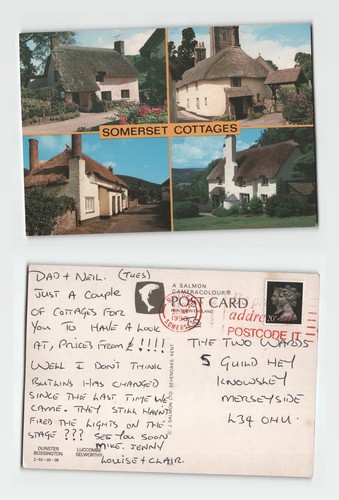 SOMERSET COTTAGES
DAD + NEIL. (TUES)
JUST A COUPLE
OF COTTAGES FOR
YOU TO HAVE A LOOK
AT, PRICES FROM £!!!!
WELL I DON'T THINK
BUTLINS HAS CHANGED
SINCE THE LAST TIME WE
CAME. THEY STILL HAVN'T
FIXED THE LIGHTS ON THE
STAGE ??? SEE YOU SOON
MIKE. JENNY
LOUISE + CLAIR.
DUNSTER
BOSSINGTON
LUCCOMBE
SELWORTHY
2-50-06-08
© J SALMON LTD. SEVENOAKS. KENT
A SALMON
CAMERACOLOUR®
POST CARD
PRINTED IN ENGLAND
1990
SOMERSET
address
POSTCODE IT
20
THE TWO WARDS
5 GUILD HEY
KNOWSLEY
MERSEYSIDE
L34 0HU.